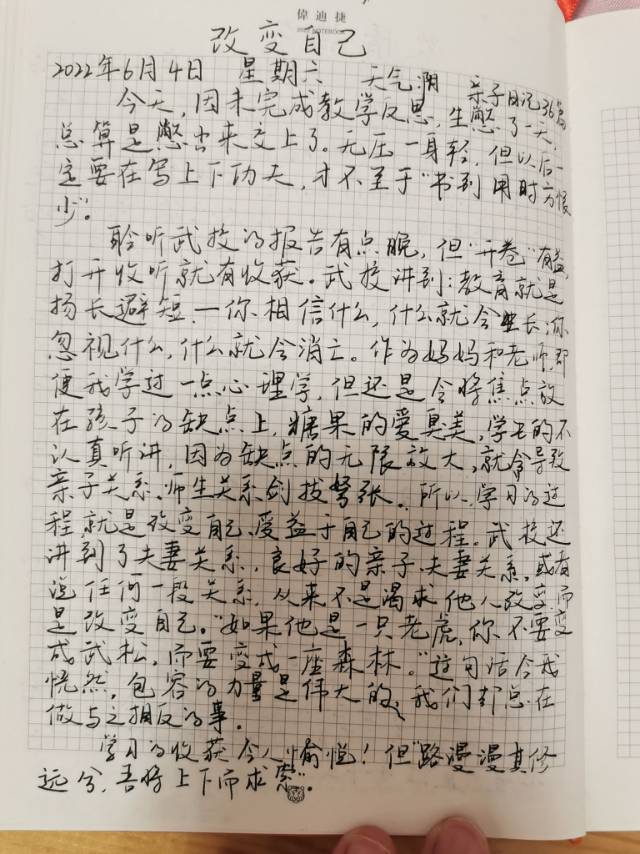 偉迪捷
改变自己
2022年6月4日 星期六 天气:阴 亲子日记36篇
今天,因未完成教学反思,生憋了一天,
总算是憋出来交上了。无压一身轻,但以后一
定要在写上下功夫,才不至于“书到用时方恨
少”。
聆听武校的报告有点晚,但“开卷”有益,
打开收听就有收获。武校讲到:教育就是
扬长避短,一你相信什么,什么就会生长;你
忽视什么,什么就会消亡。作为妈妈和老师,即
便我学过一点心理学,但还是会将焦点放
在孩子的缺点上,糖果的爱臭美,学生的不
认真听讲,因为缺点的无限放大,就会导致
亲子关系、师生关系剑拔弩张。所以,学习的过
程,就是改变自己、受益于自己的过程。武校还
讲到了夫妻关系,良好的亲子、夫妻关系,或者
说任何一段关系,从来不是渴求他人改变而
是改变自己。“如果他是一只老虎,你不要变
成武松,而要变成一座森林。”这句话令我
恍然,包容的力量是伟大的,我们却总在
做与之相反的事。
学习的收获令人愉悦!但“路漫漫其修
远兮,吾将上下而求索”。